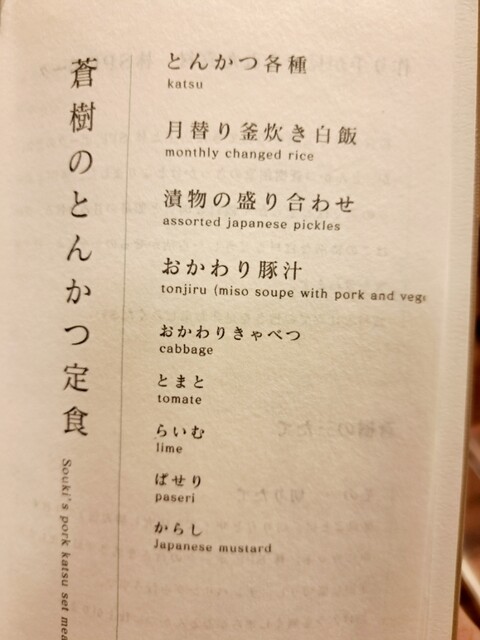 蒼樹のとんかつ定食
Souki's pork katsu set
とんかつ各種
katsu
月替り釜炊き白飯
monthly changed rice
漬物の盛り合わせ
assorted japanese pickles
おかわり豚汁
tonjiru (miso soupe with pork and
おかわりきゃべつ
cabbage
とまと
tomate
らいむ
lime
ぱせり
paseri
からし
Japanese mustard